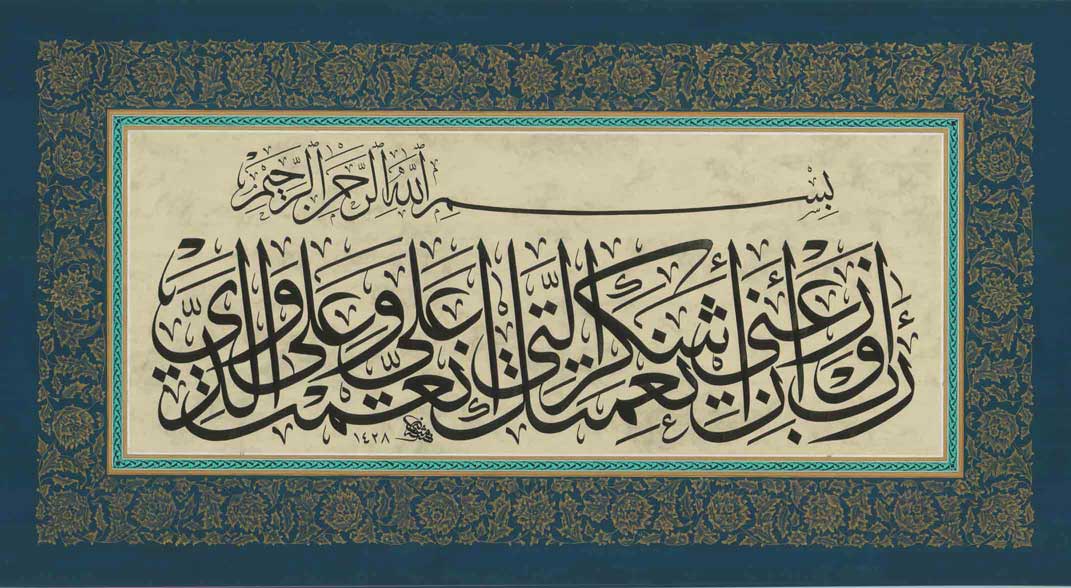 بِسْمِ اللَّهِ الرَّحْمَنِ الرَّحِيمِ
رَبِّ أَوْزِعْنِي أَنْ أَشْكُرَ نِعْمَتَكَ الَّتِي أَنْعَمْتَ عَلَيَّ وَعَلَى وَالِدَيَّ
١٤٢٨